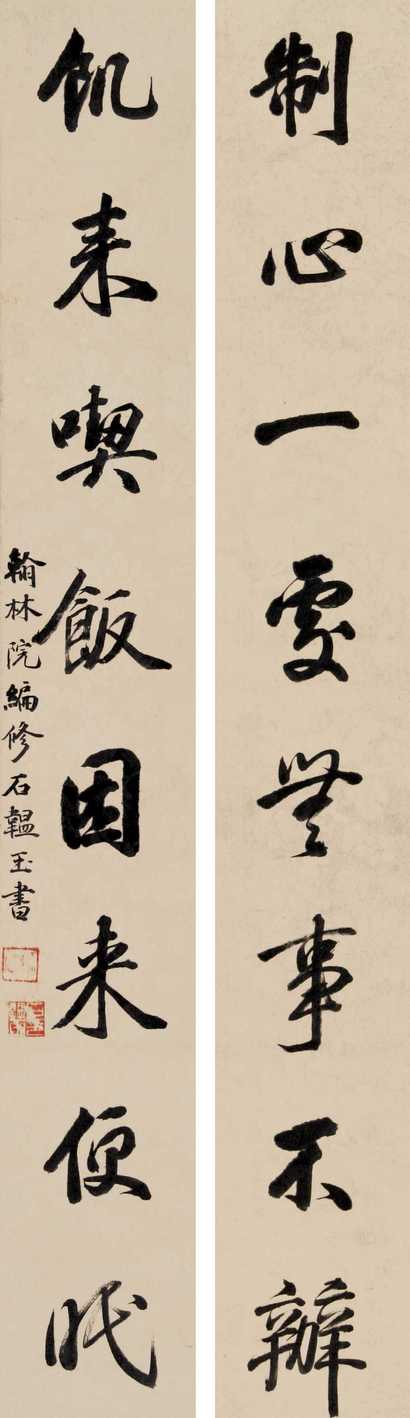 制心一處無事不辦
飢來喫飯因来便眠
翰林院編修石韞玉書